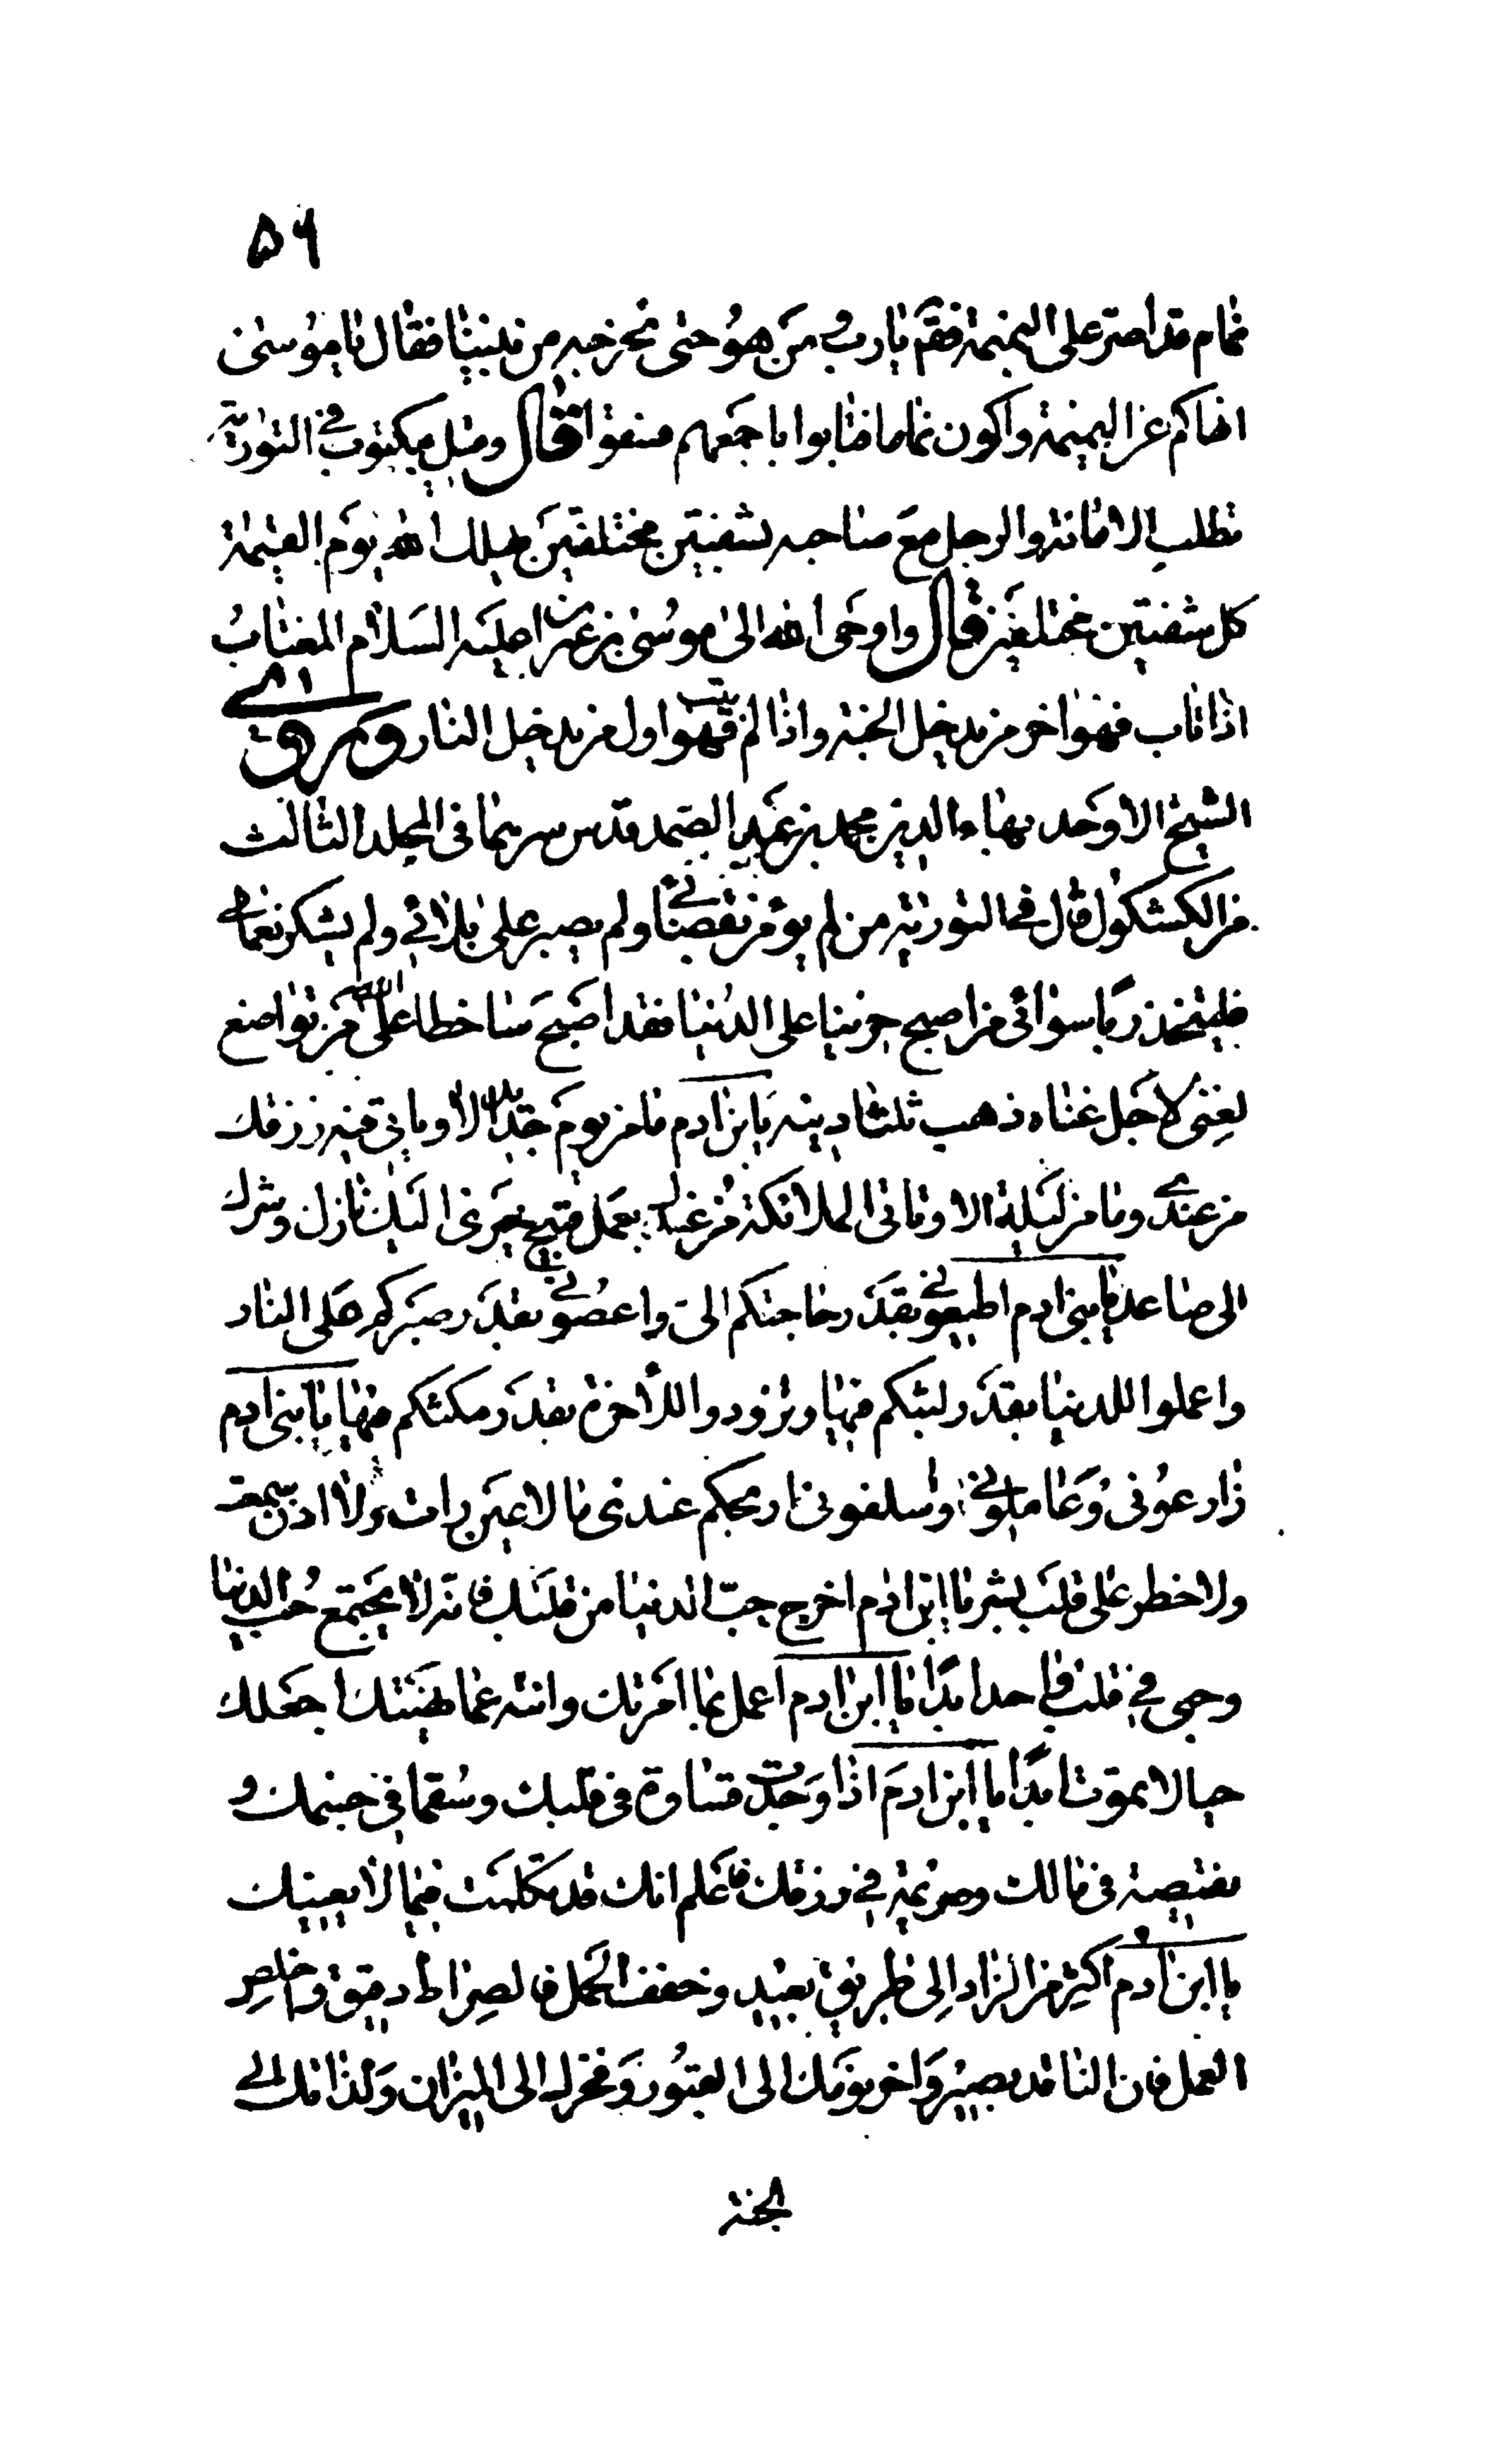 ۵۶
نمام قد اصر على النميمة فقم يا رب من هو حتى نخرجه من بيننا فقال يا موسى
انهاكم عن النميمة واكون نماما فتابوا باجمعهم فسقوا قال وقيل مكتوب في التورية
تطلب الامانة والرجل مع صاحبه بشفتين مختلفتين يهلك الله يوم القيمة
كل شفتين مختلفتين قال واوحى الله الى موسى بن عمران عليه السلام المغتاب
اذا تاب فهو اخر من يدخل الجنة واذا لم يتب فهو اول من يدخل النار وروى
الشيخ الاوحد بهاء الدين محمد بن عبد الصمد قدس سرهما في المجلد الثالث
من الكشكول قال في التورية من لم يؤمن بقضائي ولم يصبر على بلائي ولم يشكر نعمائي
فليتخذ ربا سوائي من اصبح حزينا على الدنيا فقد اصبح ساخطا على الله من تواضع
لغني لاجل غناه ذهب ثلثا دينه يا بن ادم ما من يوم جديد الا وياتي فيه رزقك
من عندي وما من ليلة الا وتاتي الملائكة من عندك بعمل قبيح خيري اليك نازل وشرك
الى صاعد يا بني ادم اطيعوني بقدر حاجتكم الي واعصوني بقدر صبركم على النار
واعملوا للدنيا بقدر لبثكم فيها وتزودوا للاخرة بقدر مكثكم فيها يا بني ادم
زارعوني وعاملوني واسلفوني اربحكم عندي ما لا عين رات ولا اذن سمعت
ولا خطر على قلب بشر يا ابن ادم اخرج حب الدنيا من قلبك فانه لا يجتمع حب الدنيا
وحبي في قلب واحد ابدا يا ابن ادم اعمل بما امرتك وانته عما نهيتك اجعلك
حيا لا يموت ابدا يا ابن ادم اذا وجدت قساوة في قلبك وسقما في جسمك و
نقيصة في مالك وحريمة في رزقك فاعلم انك قد تكلمت فيما لا يعنيك
يا ابن ادم اكثر من الزاد الى طريق بعيد وخفف الحمل فالصراط دقيق واخلص
العمل فان الناقد بصير واخر نومك الى القبور وفخرك الى الميزان ولذاتك الى
الجنة